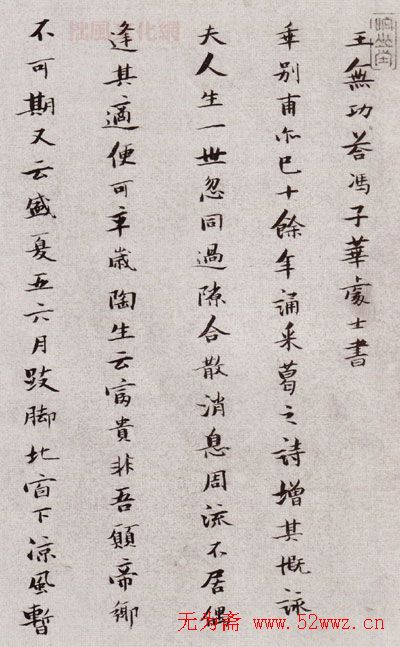 王無功荅馮子華處士書
乖別甫尔已十餘年誦采葛之詩增其慨詠
夫人生一世忽同過隙合散消息周流不居偶
逢其適便可卒歲陶生云富貴非吾願帝鄉
不可期又云盛夏五六月跂脚北窗下涼風暫
拙風文化網
无为斋 www.52wwz.cn